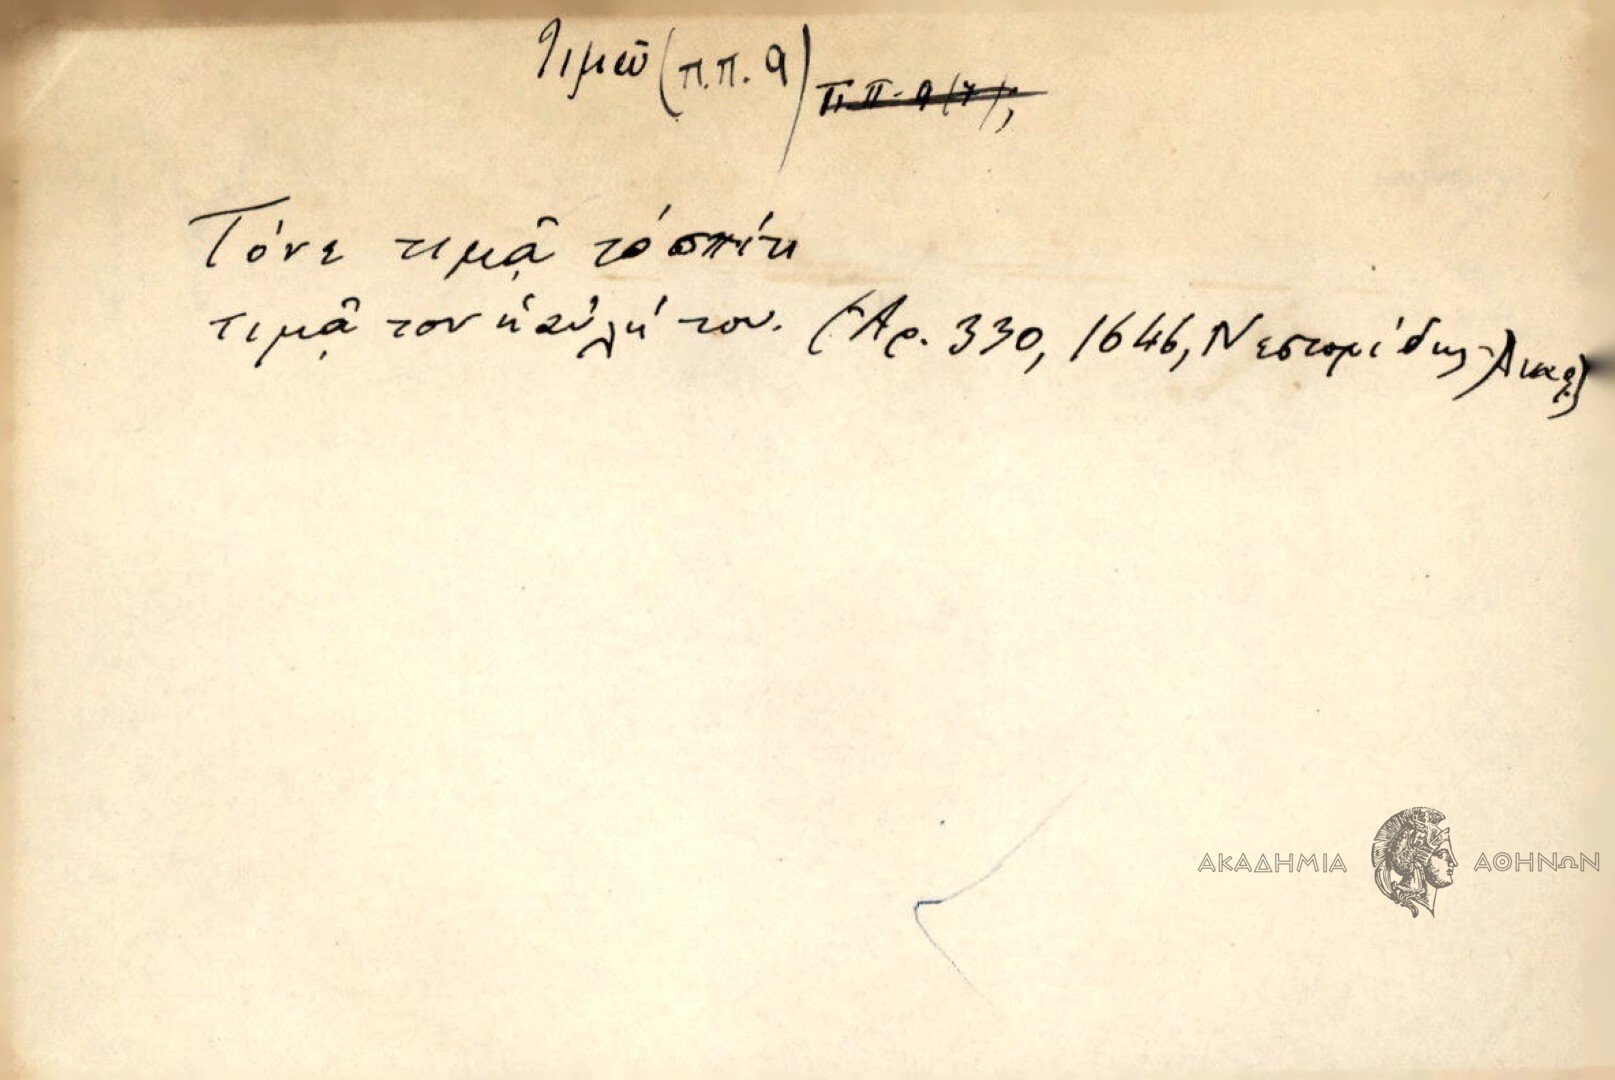 Τιμῶ (π.π. 9) π.π. 9 (7);
Τόνε τιμᾷ τό σπίτι
τιμᾷ τον ἡ αὐλή του. (Ἀρ. 330, 1646, Νεστορίδης
ΑΚΑΔΗΜΙΑ ΑΘΗΝΩΝ